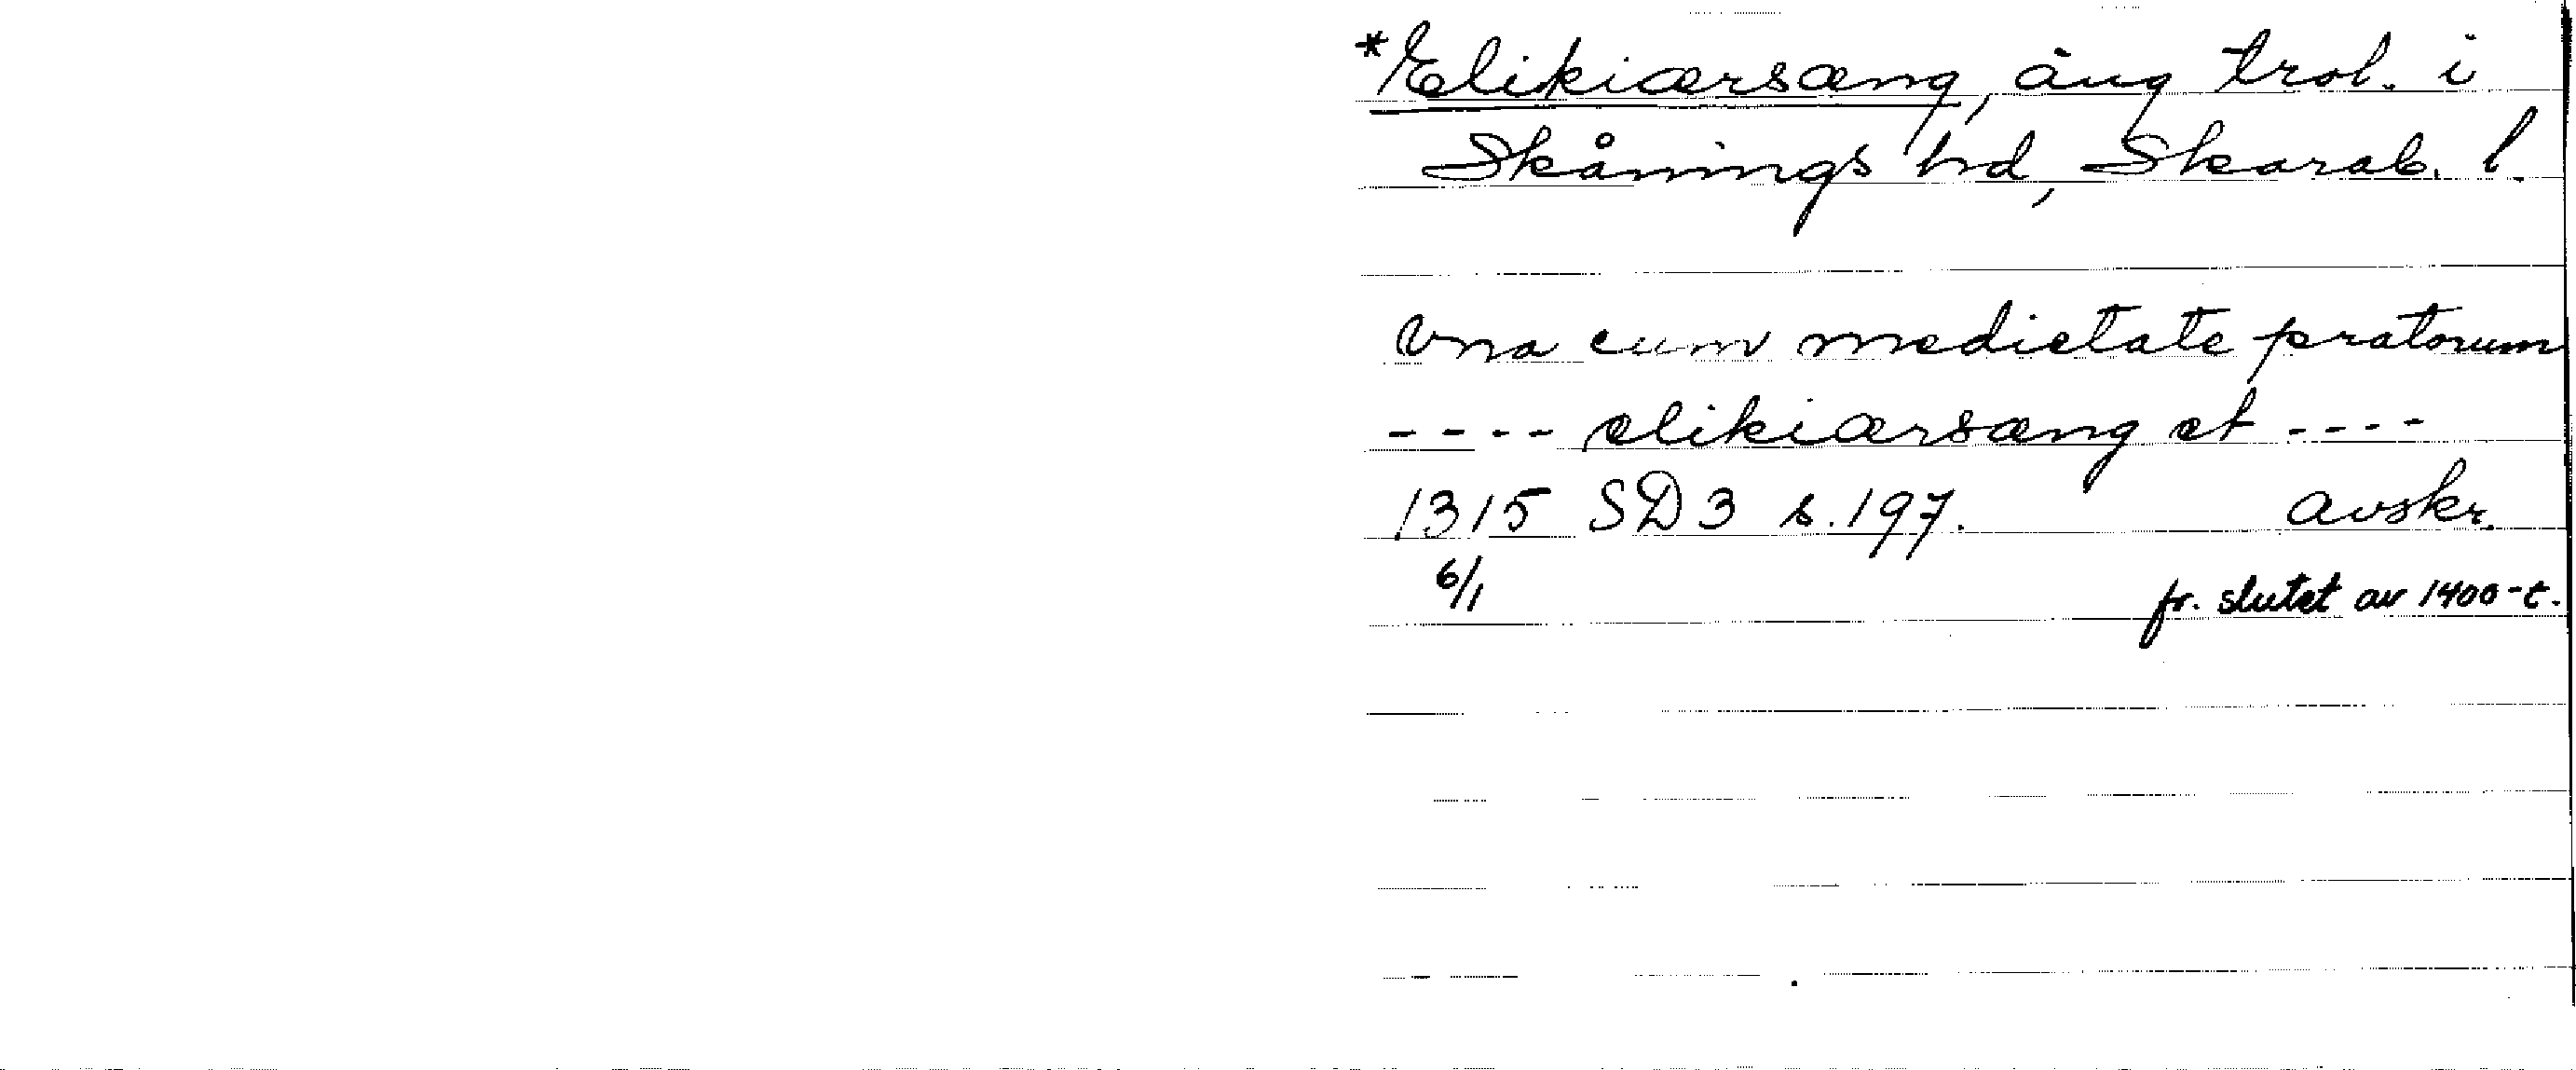 *Elikiærsæng, äng trol. i
Skånings hd, Skarab. l.
vna cum medietate pratorum
---- elikiærsæng et ----
1315 SD 3 s. 197. avskr.
6/1 fr. slutet av 1400-t.